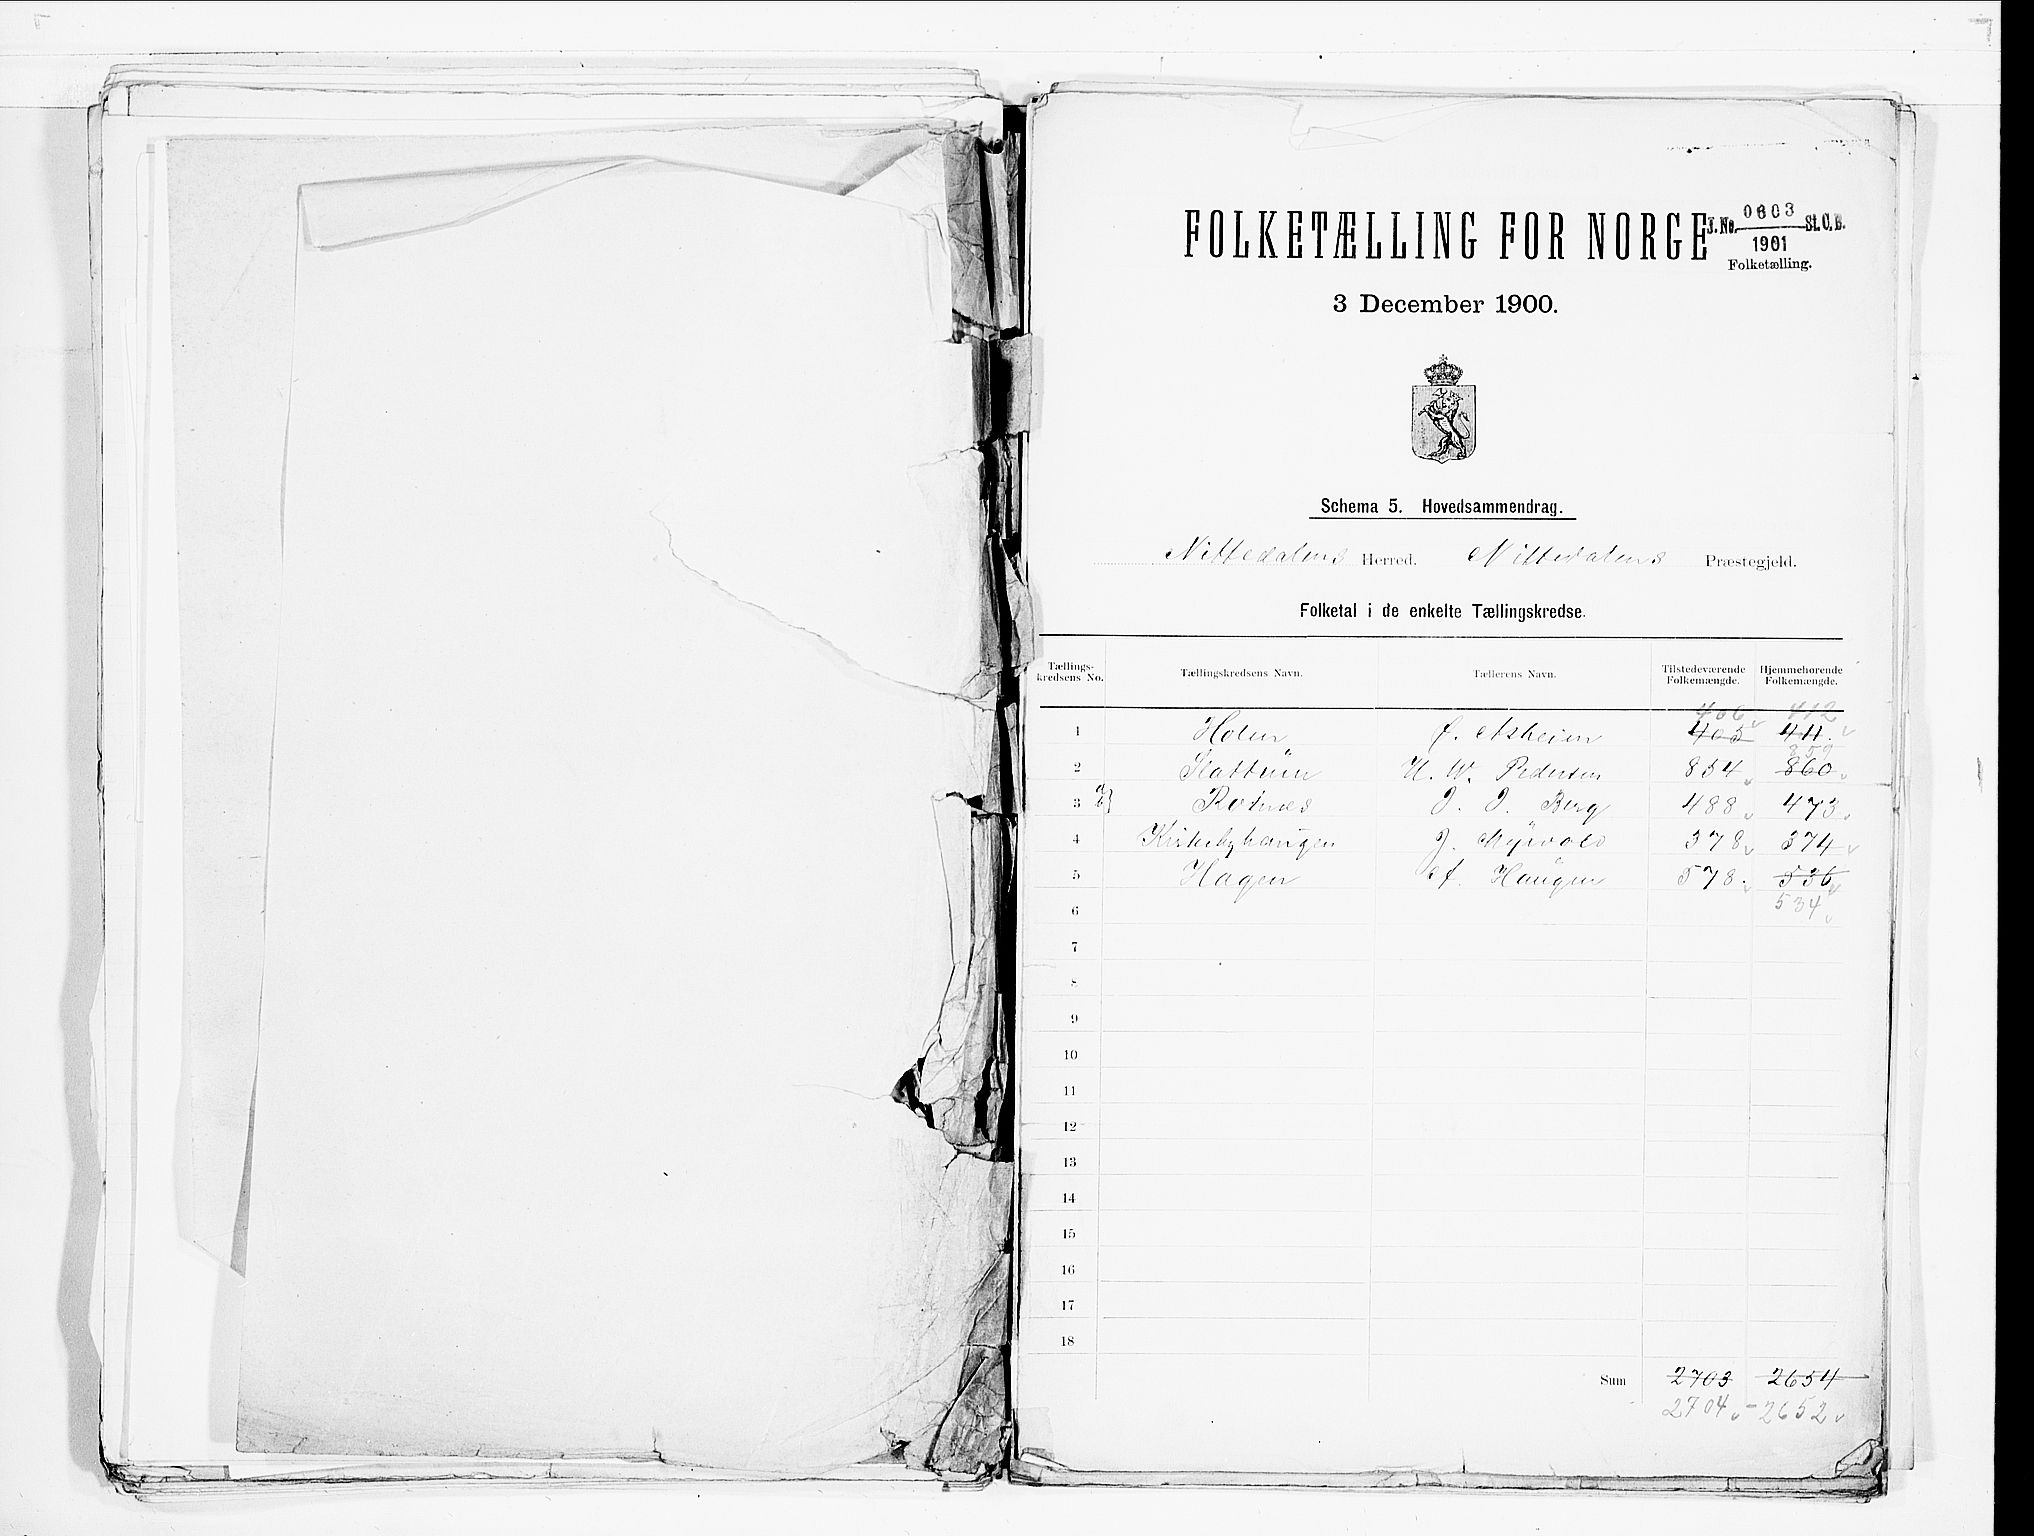 FOLKETÆLLING FOR NORGE
J. No. 0603 St. C. B.
1901
Folketælling.
3 December 1900.
Schema 5. Hovedsammendrag.
Nittedalens Herred. Nittedalens Præstegjeld.
Folketal i de enkelte Tællingskredse.
Tællings-kredsens No. Tællingskredsens Navn. Tællerens Navn. Tilstedeværende Folkemængde. Hjemmehørende Folkemængde.
406 412
1 Holm Asheim 405 411
859
2 Slattum H. W. Pedersen 854 860
3 a b Rotnes J. J. Berg 488 473
4 Kirkebyhaugen J. Myrvold 378 374
5 Hagen A. Haugen 578 536
6 534
7
8
9
10
11
12
13
14
15
16
17
18
Sum 2703 2654
2704 - 2652